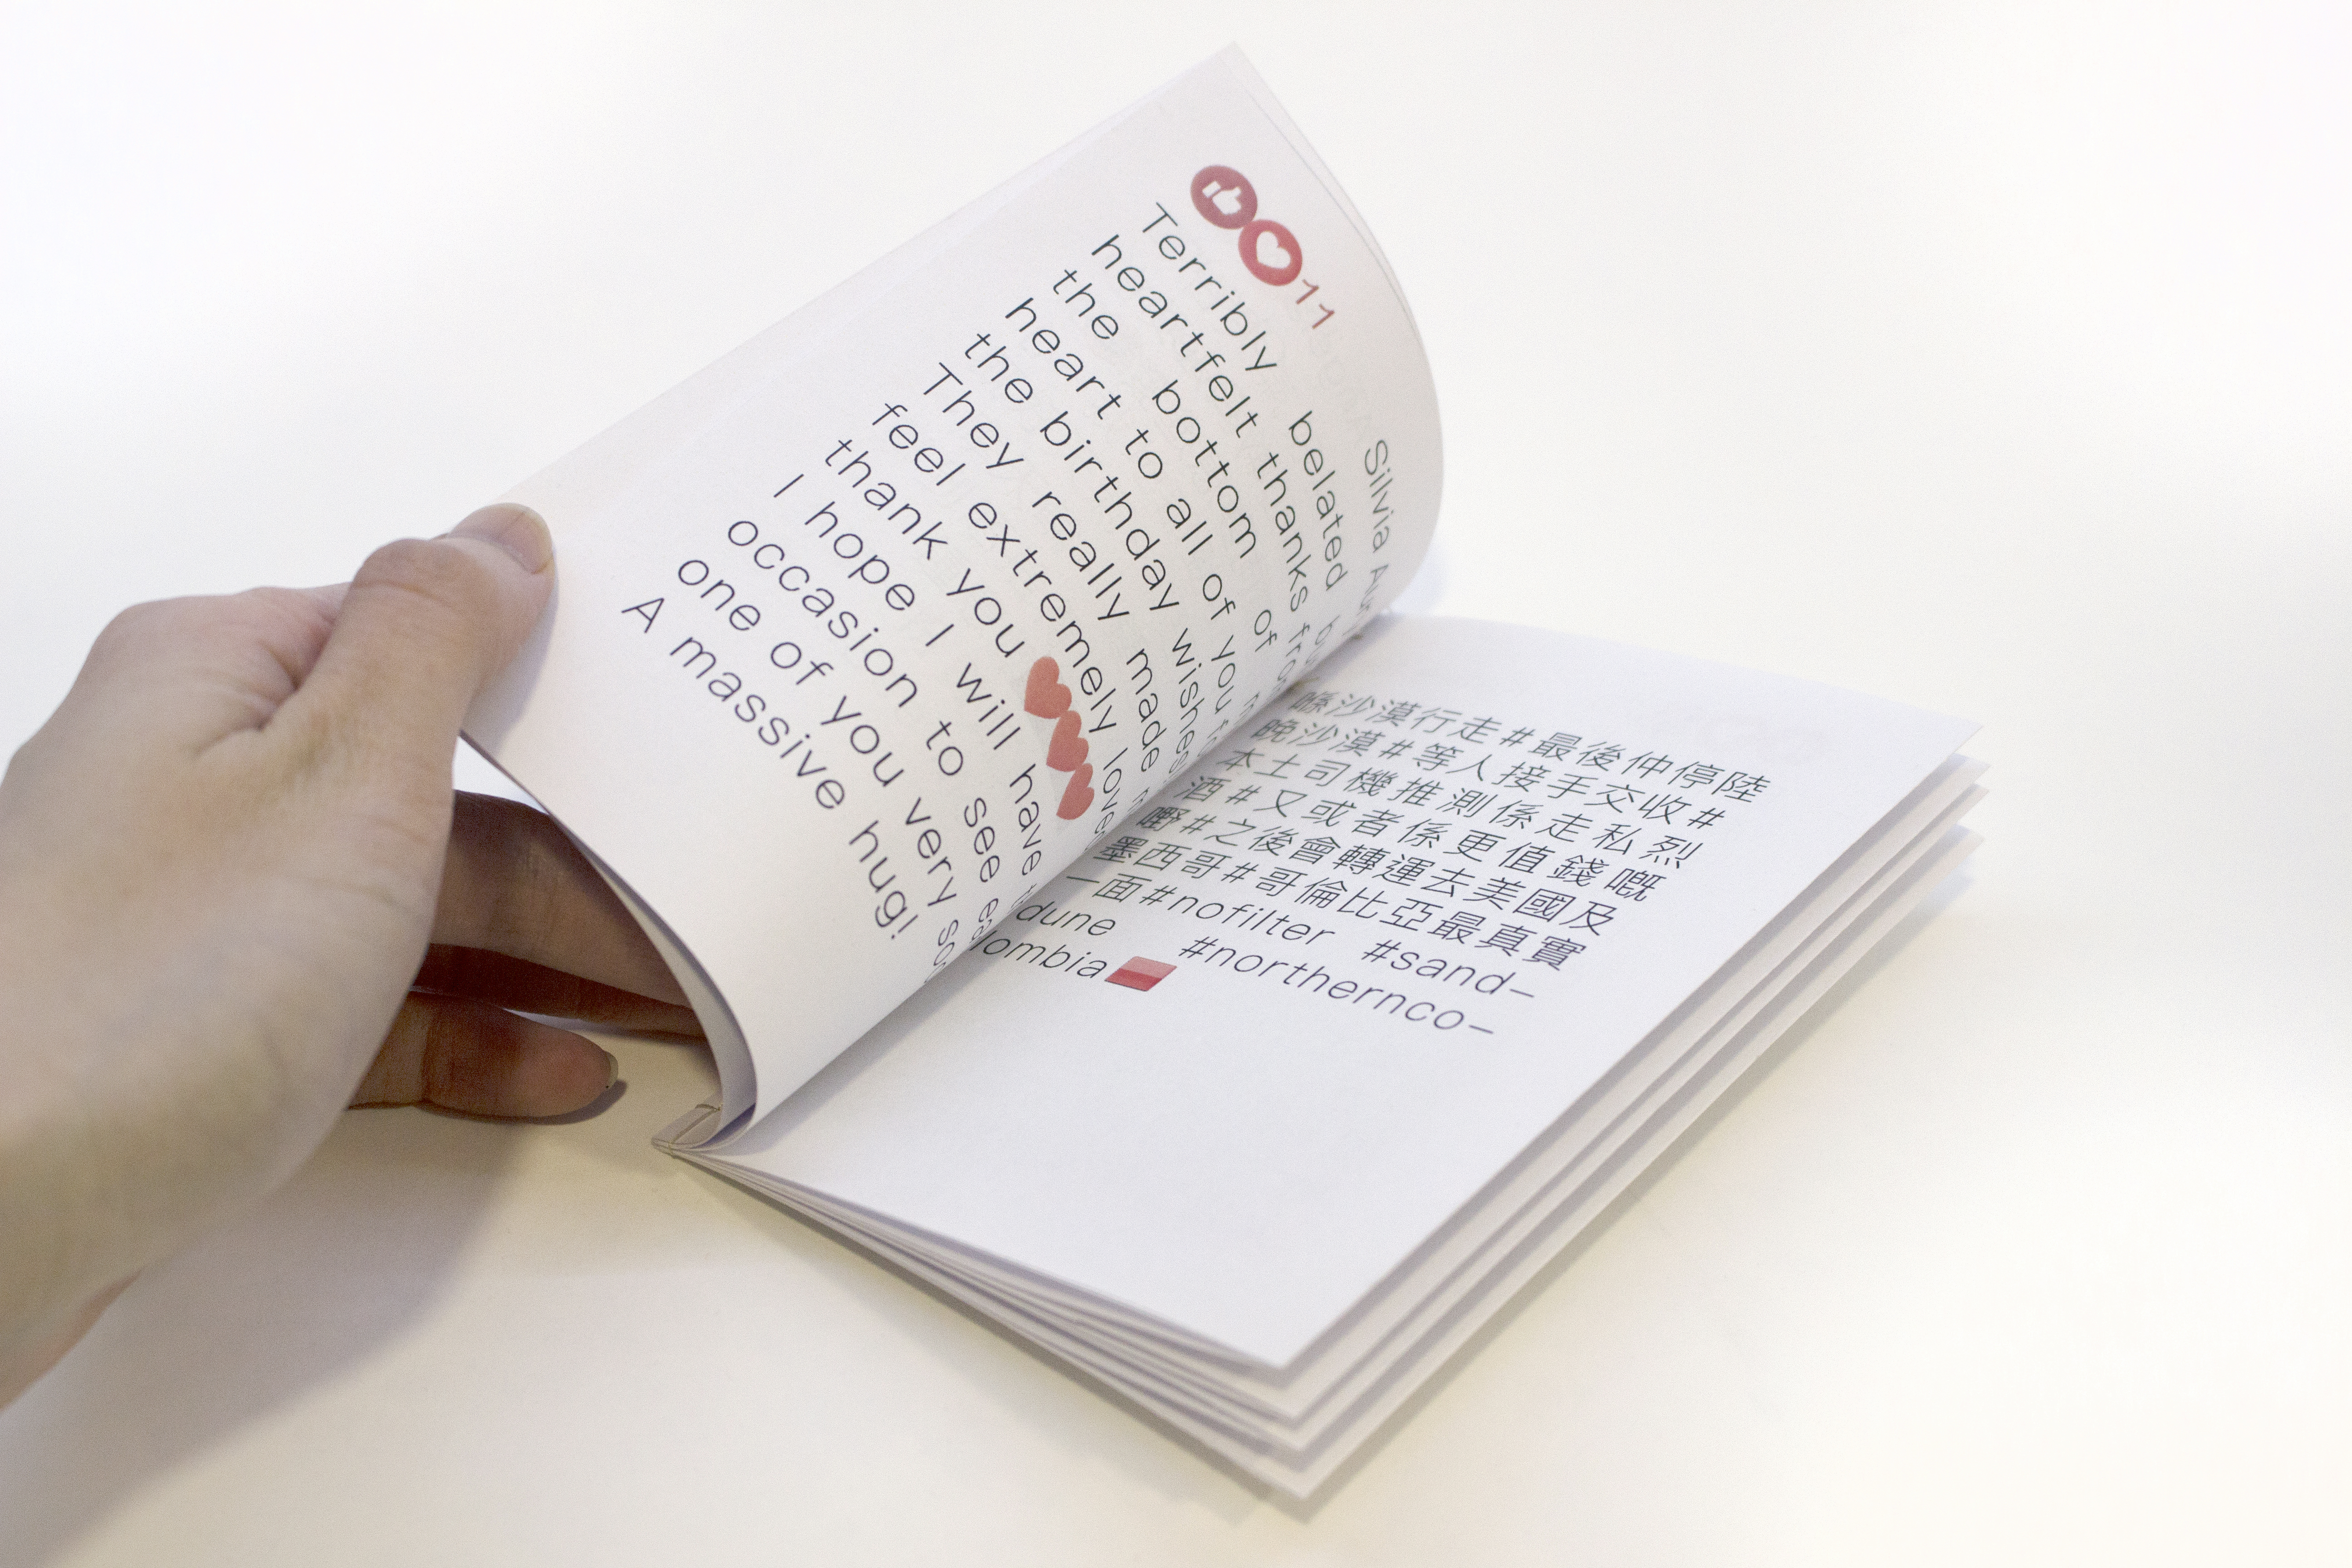 11 Silvia
Terribly belated
heartfelt thanks from
the bottom of
heart to all of you
the birthday wishes.
They really made
feel extremely loved
thank you ❤❤❤
I hope I will have
occasion to see
one of you very
A massive hug!
喺沙漠行走#最後仲停陸
晚沙漠#等人接手交收#
本土司機推測係走私烈
酒#又或者係更值錢嘅
嘢#之後會轉運去美國及
墨西哥#哥倫比亞最真實
一面#nofilter #sand–
dune #northernco–
lombia